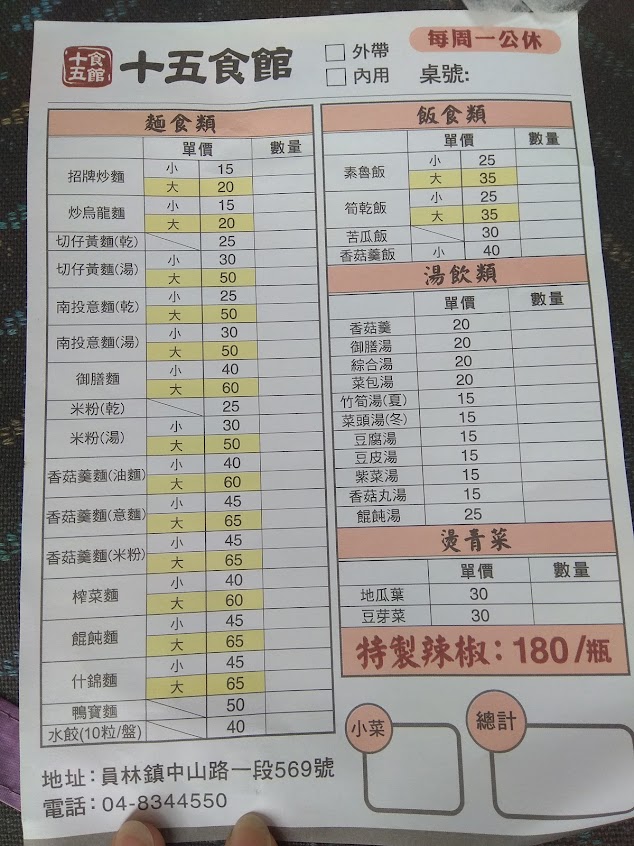 十五食館
十五食館
每周一公休
外帶
內用
桌號:
麵食類
單價 數量
招牌炒麵 小 15
大 20
炒烏龍麵 小 15
大 20
切仔黃麵(乾) 25
切仔黃麵(湯) 小 30
大 50
南投意麵(乾) 小 25
大 50
南投意麵(湯) 小 30
大 50
御膳麵 小 40
大 60
米粉(乾) 25
米粉(湯) 小 30
大 50
香菇羹麵(油麵) 小 40
大 60
香菇羹麵(意麵) 小 45
大 65
香菇羹麵(米粉) 小 45
大 65
榨菜麵 小 40
大 60
餛飩麵 小 45
大 65
什錦麵 小 45
大 65
鴨寶麵 50
水餃(10粒/盤) 40
飯食類
單價 數量
素魯飯 小 25
大 35
筍乾飯 小 25
大 35
苦瓜飯 30
香菇羹飯 小 40
湯飲類
單價 數量
香菇羹 20
御膳湯 20
綜合湯 20
菜包湯 20
竹筍湯(夏) 15
菜頭湯(冬) 15
豆腐湯 15
豆皮湯 15
紫菜湯 15
香菇丸湯 15
餛飩湯 25
燙青菜
單價 數量
地瓜葉 30
豆芽菜 30
特製辣椒:180/瓶
小菜
總計
地址:員林鎮中山路一段569號
電話:04-8344550